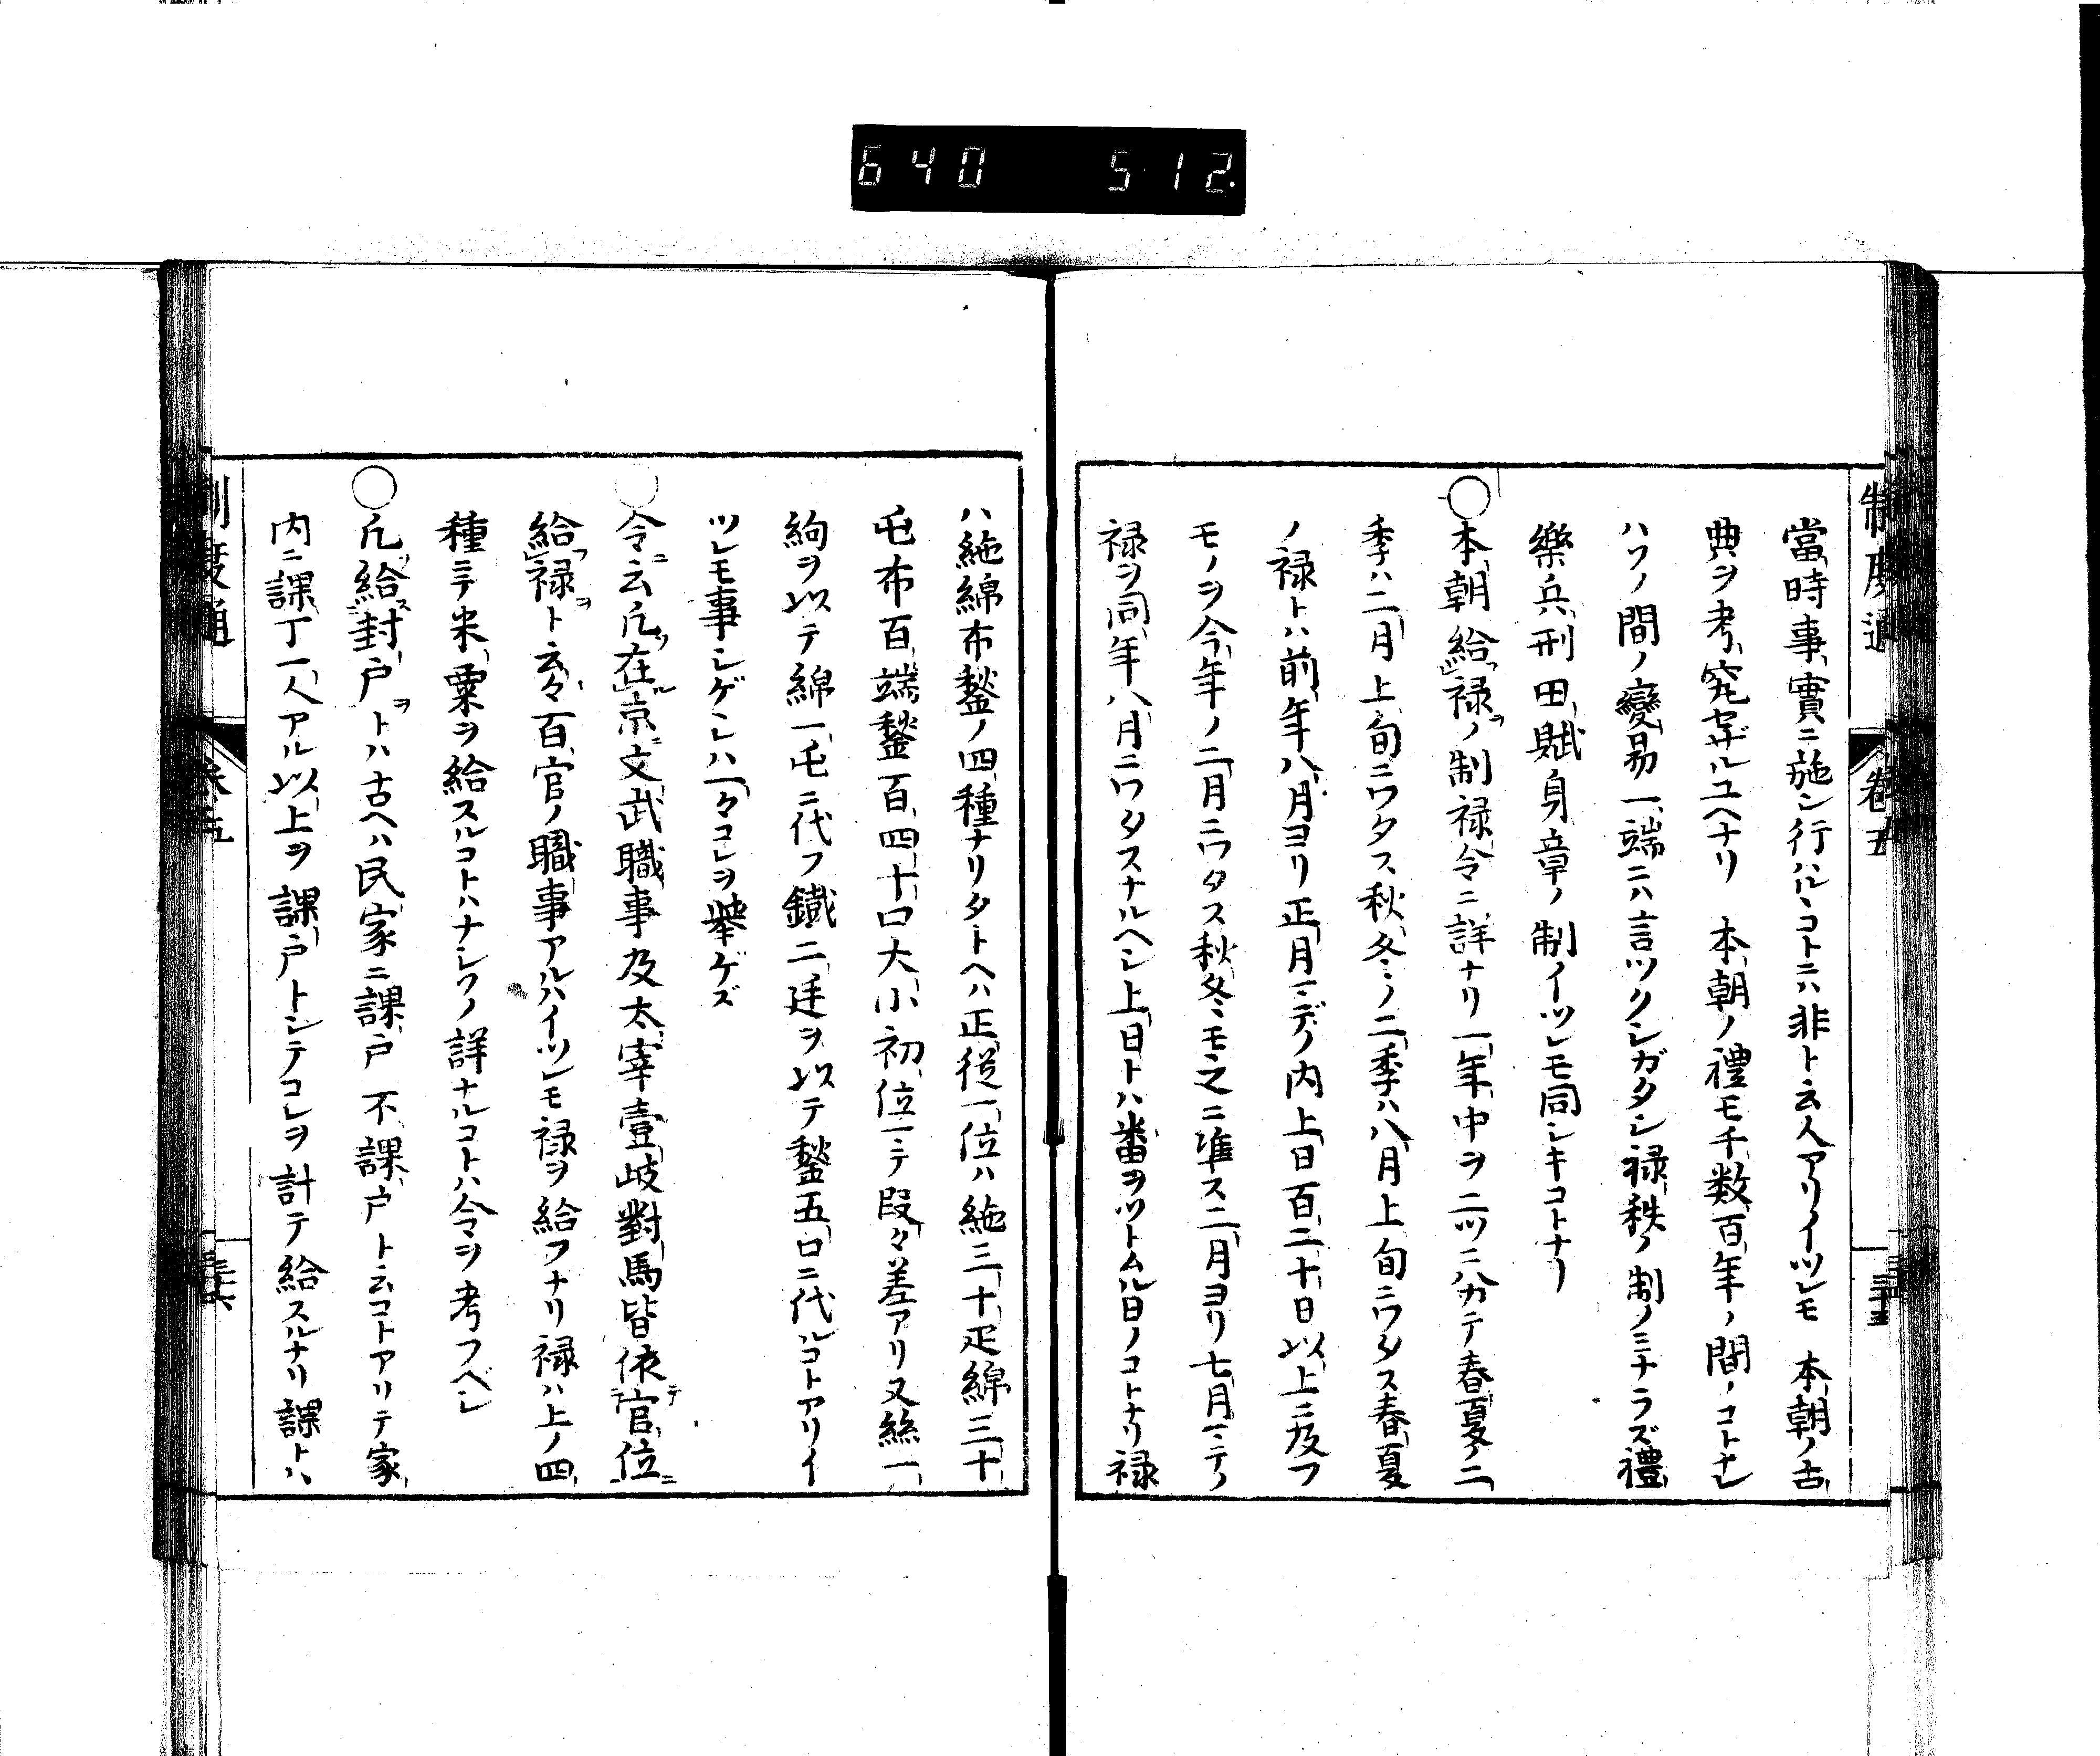 640 512
制度通 卷五 三十五
當時事實ニ施シ行ハルヽコトニハ非ト云人アリイツレモ 本朝ノ古
典ヲ考究セザルユヘナリ 本朝ノ禮モ千数百年ノ間ノコトナレ
ハソノ間ノ變易一端ニハ言ツクシガタシ禄秩ノ制ノミナラズ禮
樂兵刑田賦身章ノ制イツレモ同シキコトナリ
○本朝給禄ノ制禄令ニ詳ナリ一年中ヲ二ツニ分テ春夏ノ二
季ハ二月上旬ニワタス秋冬ノ二季ハ八月上旬ニワタス春夏
ノ禄トハ前年八月ヨリ正月マデノ内上日百二十日以上ニ及フ
モノヲ今年ノ二月ニワタス秋冬モ之ニ准ス二月ヨリ七月マテノ
禄ヲ同年八月ニワタスナルヘシ上日トハ番ヲツトムル日ノコトナリ禄
ハ絁綿布鍬ノ四種ナリタトヘハ正従一位ハ絁三十疋綿三十
屯布百端鍬百四十口大小初位マテ段々差アリ又絲一
絇ヲ以テ綿一屯ニ代フ鐵二廷ヲ以テ鍬五口ニ代ルコトアリイ
ツレモ事シゲシハ一々コレヲ舉ゲズ
○令ニ云凡在京文武職事及太宰壹岐對馬皆依官位
給禄ト云々百官ノ職事アルハイツレモ禄ヲ給フナリ禄ハ上ノ四
種ニテ米粟ヲ給スルコトハナシソノ詳ナルコトハ令ヲ考フベシ
○凡給封戸トハ古ヘハ民家ニ課戸不課戸ト云コトアリテ家
内ニ課丁一人アル以上ヲ課戸トシテコレヲ計テ給スルナリ課トハ
制度通 卷五 三十六